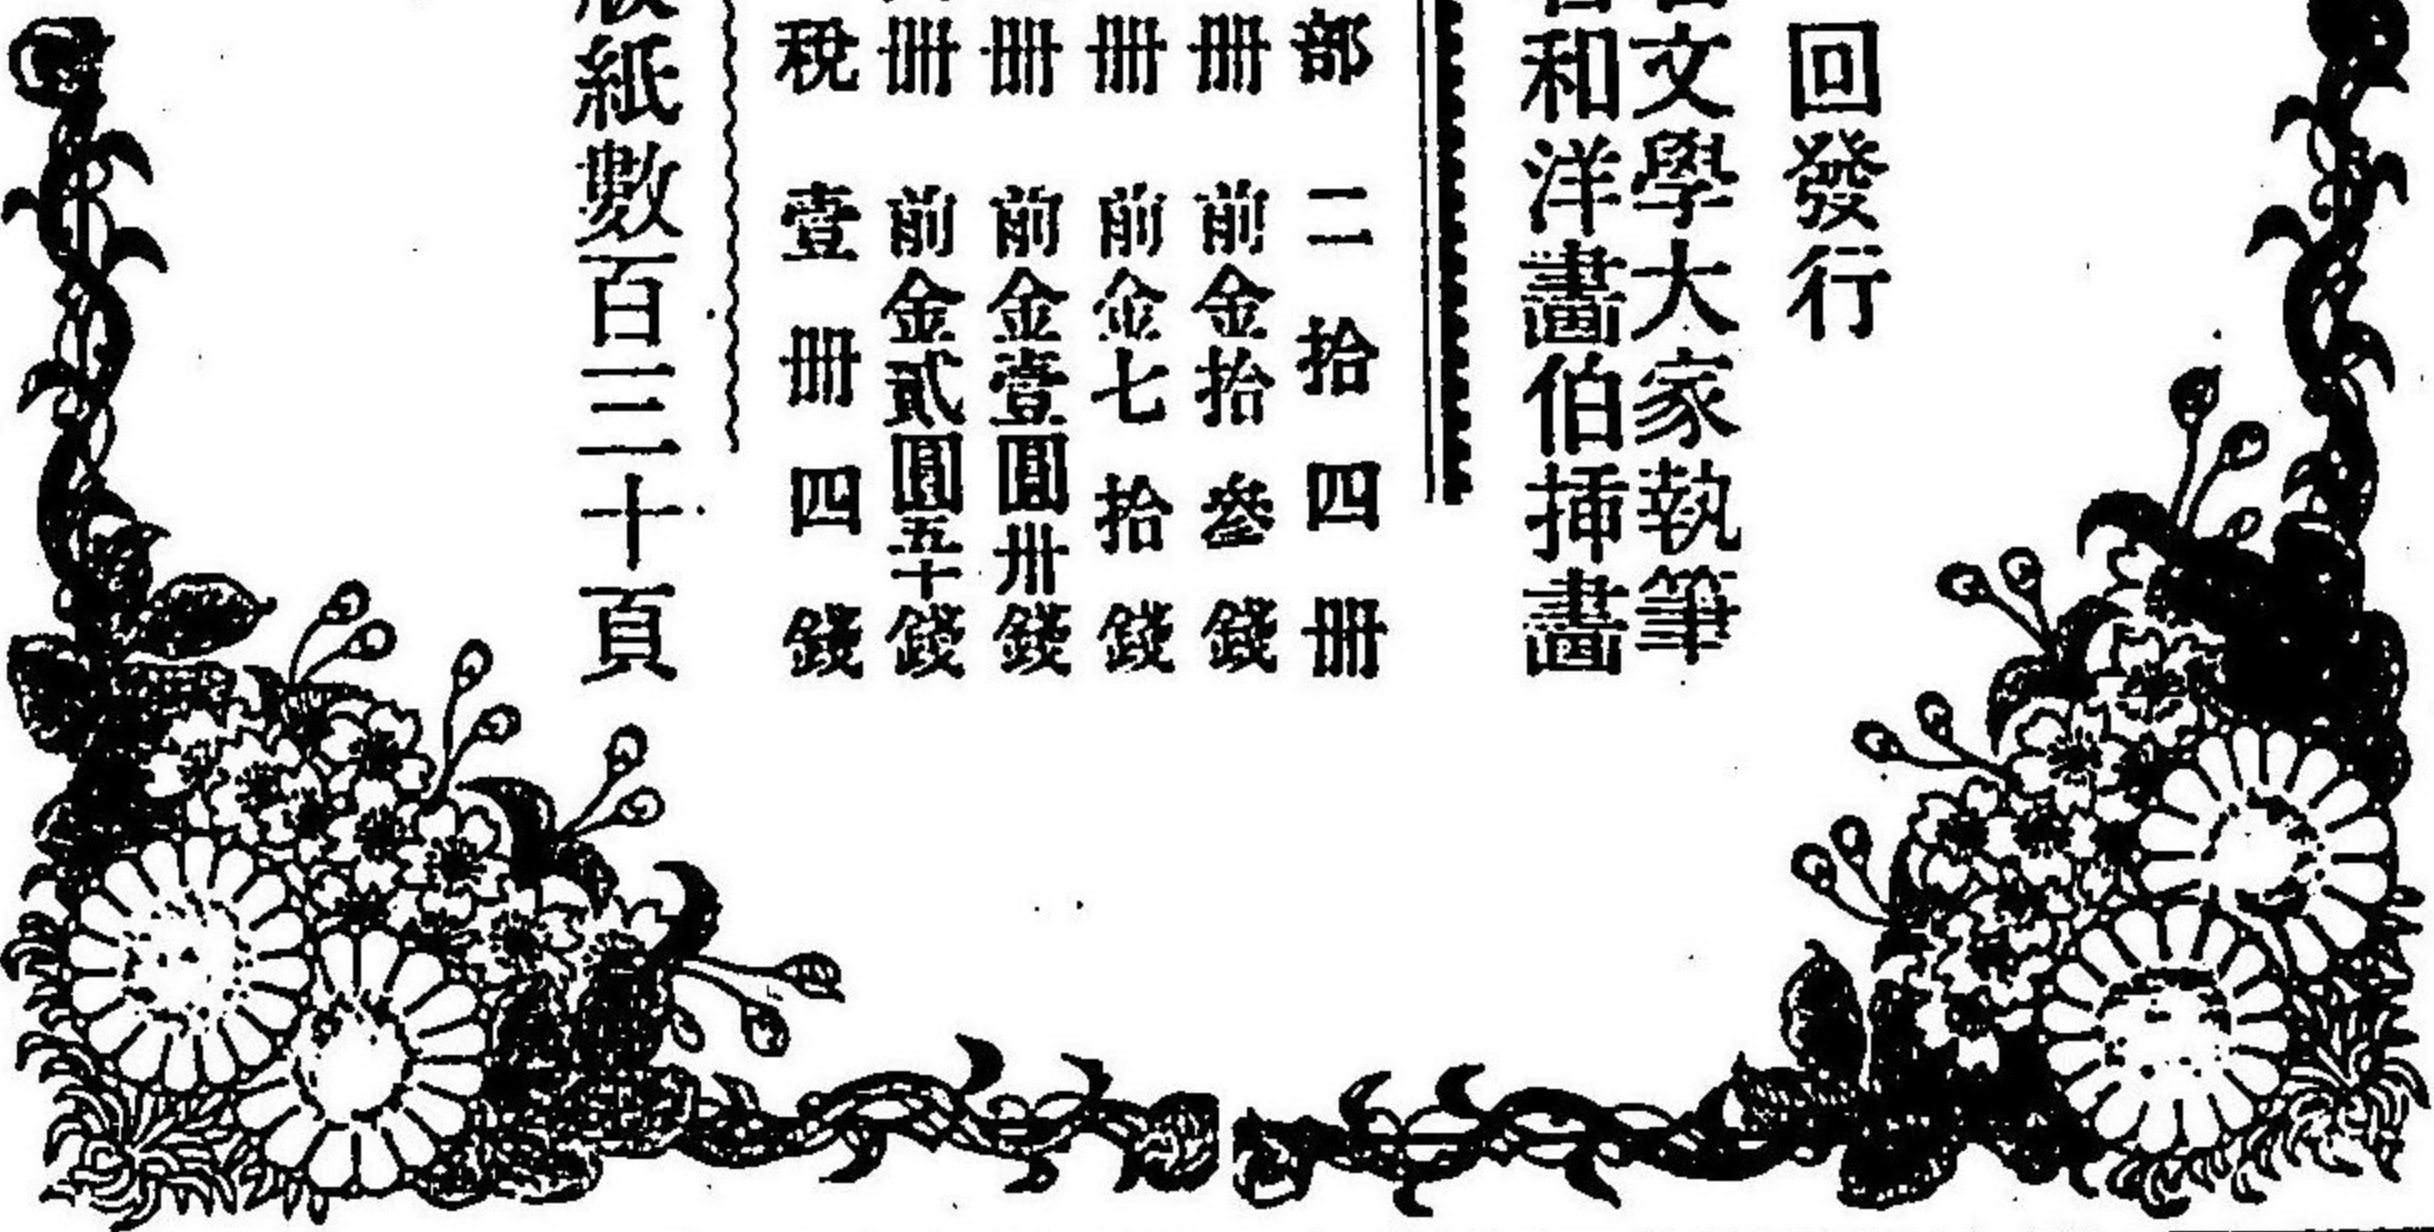 回發行
文學大家執筆
和洋畫伯挿畫
部二拾四册
册前金拾叄錢
册前金七拾錢
册前金壹圓卅錢
册前金貳圓五十錢
稅壹册四錢
紙數百三十頁